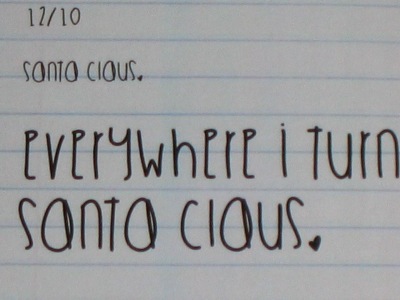 12/10
santa claus.
everywhere i turn
santa claus.